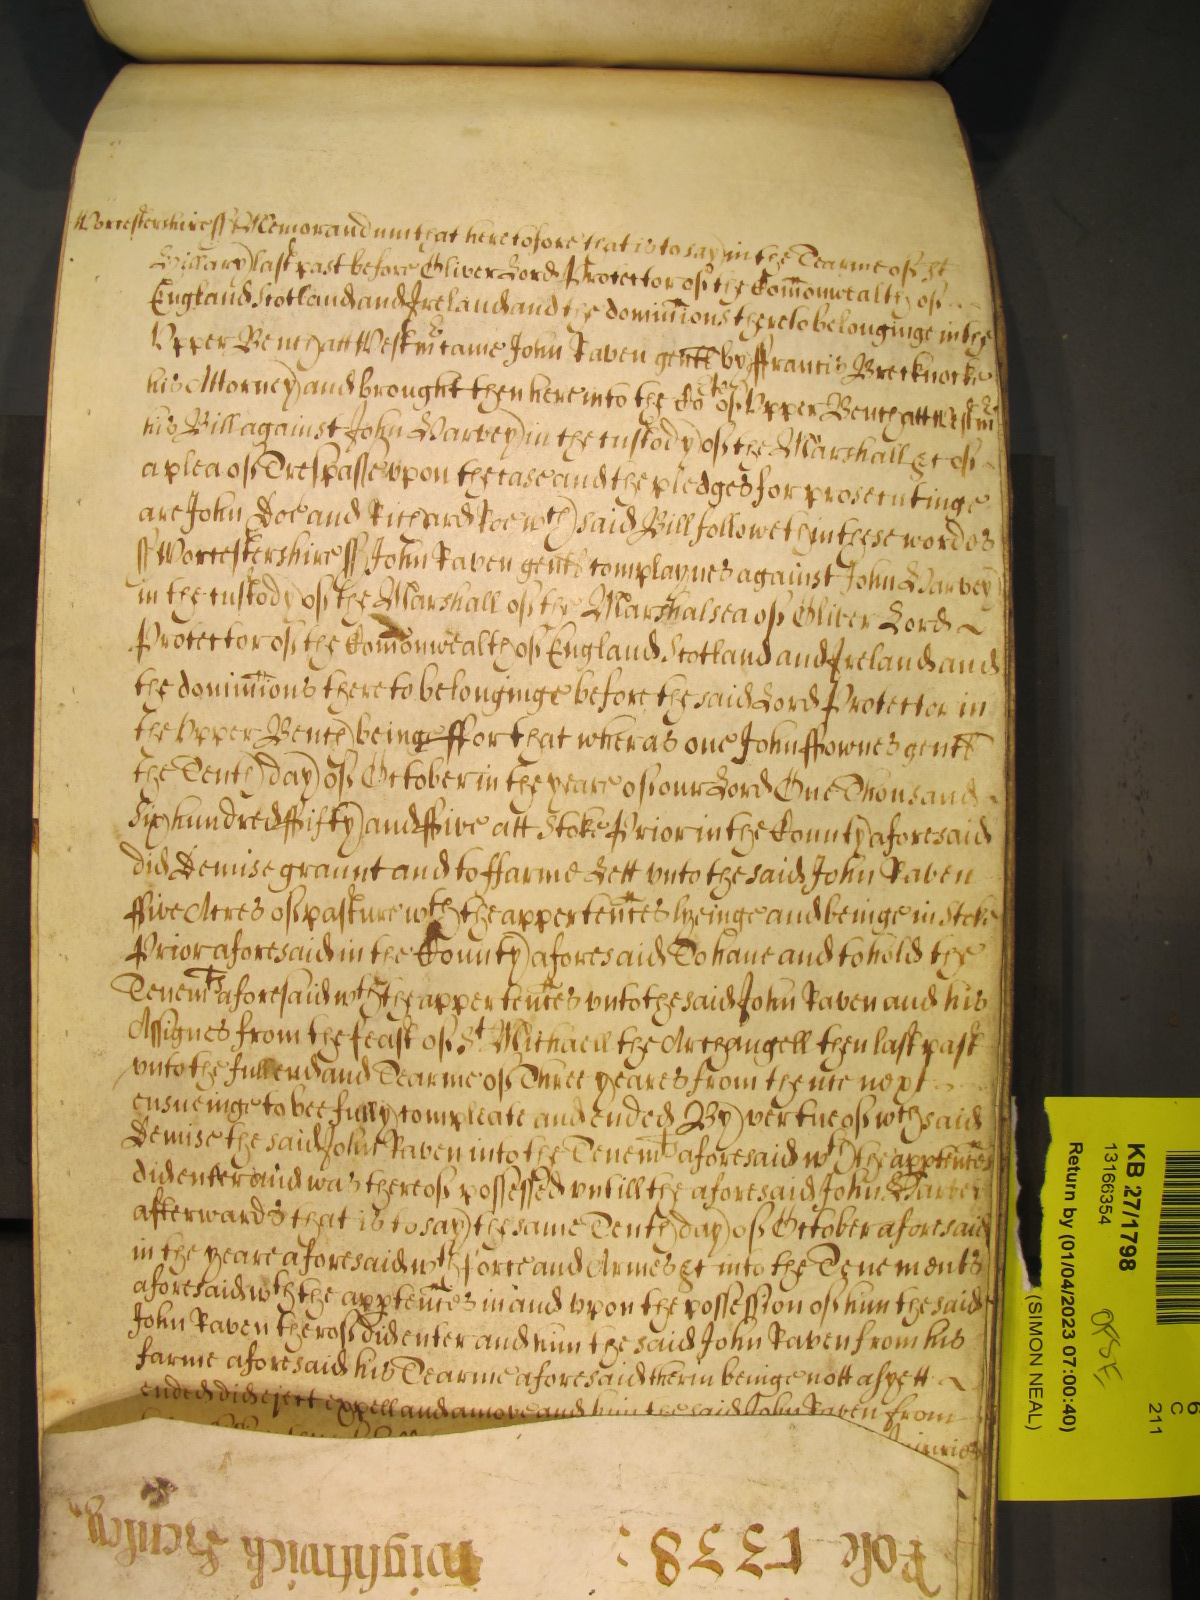 Worcestershire ss Memorandum that heretofore that is to say in the Tearme of St
Hillary last past before Oliver Lord Protector of the Com̄onwealth of
England Scotland and Ireland and the dominions thereto belonginge in the
Upper Bench att Westmr came John Raven gent by ffrancis Brecknocke
his Attorney and brought then here into the Cort of Upper Bench att Westmr
his Bill against John Harvey in the custody of the Marshall &c of
a plea of Trespasse upon the case and the pledges for prosecutinge
are John Doe and Richard Roe wch said Bill followeth in these wordes
ss Worcestershire ss John Raven gent complaynes against John Harvey
in the custody of the Marshall of the Marshalsea of Oliver Lord
Protector of the Com̄onwealth of England Scotland and Ireland and
the dominions thereto belonginge before the said Lord Protector in
the Upper Bench being ffor that wheras one John ffownes gent
the Tenth day of October in the yeare of our Lord One Thousand
Six hundred ffifty and ffive att Stoke Prior in the County aforesaid
did Demise graunt and to ffarme Lett vnto the said John Raven
ffive Acres of pasture wth the appertenc̄es lyeinge and beinge in Stoke
Prior aforesaid in the County aforesaid To haue and to hold the
Tenemts aforesaid wth the appertenc̄es vnto the said John Raven and his
Assignes from the feast of St Michaell the Archangell then last past
vnto the full end and Tearme of Three yeares from thence next
ensueinge to bee fully compleate and ended By vertue of wch said
Demise the said John Raven into the Tenemts aforesaid wth the apptenc̄es
did enter and was thereof possessed vntill the aforesaid John Harvey
afterwards that is to say the same Tenth day of October aforesaid
in the yeare aforesaid wth force and Armes &c into the Tenements
aforesaid wth the apptenc̄es in and vpon the possession of him the said
John Raven therof did enter and him the said John Raven from his
farme aforesaid his Tearme aforesaid therin beinge nott as yett
ended did eject expell and amove and him the said John Raven from
Role 1338:
wightwich Henley
KB 27/1798
13166354
Return by (01/04/2023 07:00:40)
(SIMON NEAL)
6
C
211